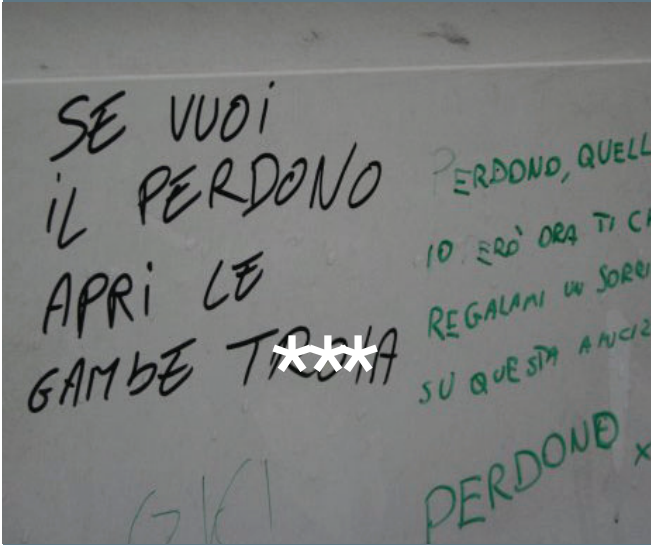 SE VUOI
IL PERDONO
APRI LE
GAMBE TROIA
***
PERDONO, QUELL
IO ERO' ORA TI
REGALAMI UN SORRI
SU QUESTA AMICIZ
PERDONO x